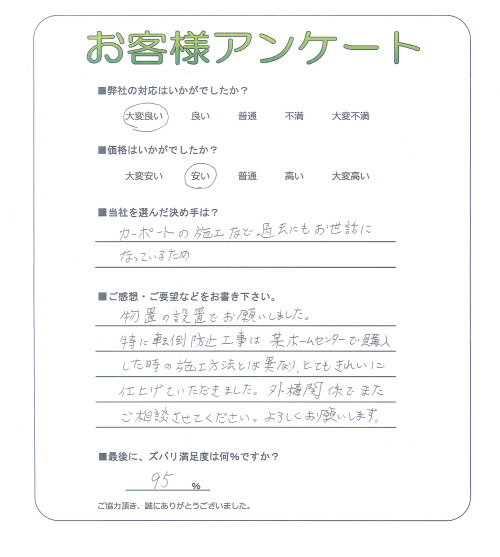 お客様アンケート
■弊社の対応はいかがでしたか？
大変良い 良い 普通 不満 大変不満
■価格はいかがでしたか？
大変安い 安い 普通 高い 大変高い
■当社を選んだ決め手は？
カーポートの施工など過去にもお世話に
なっているため
■ご感想・ご要望などをお書き下さい。
物置の設置でお願いしました。
特に転倒防止工事は某ホームセンターで購入
した時の施工方法とは異なり、とてもきれいに
仕上げていただきました。外構関係でまた
ご相談させてください。よろしくお願いします。
■最後に、ズバリ満足度は何%ですか？
95 %
ご協力頂き、誠にありがとうございました。